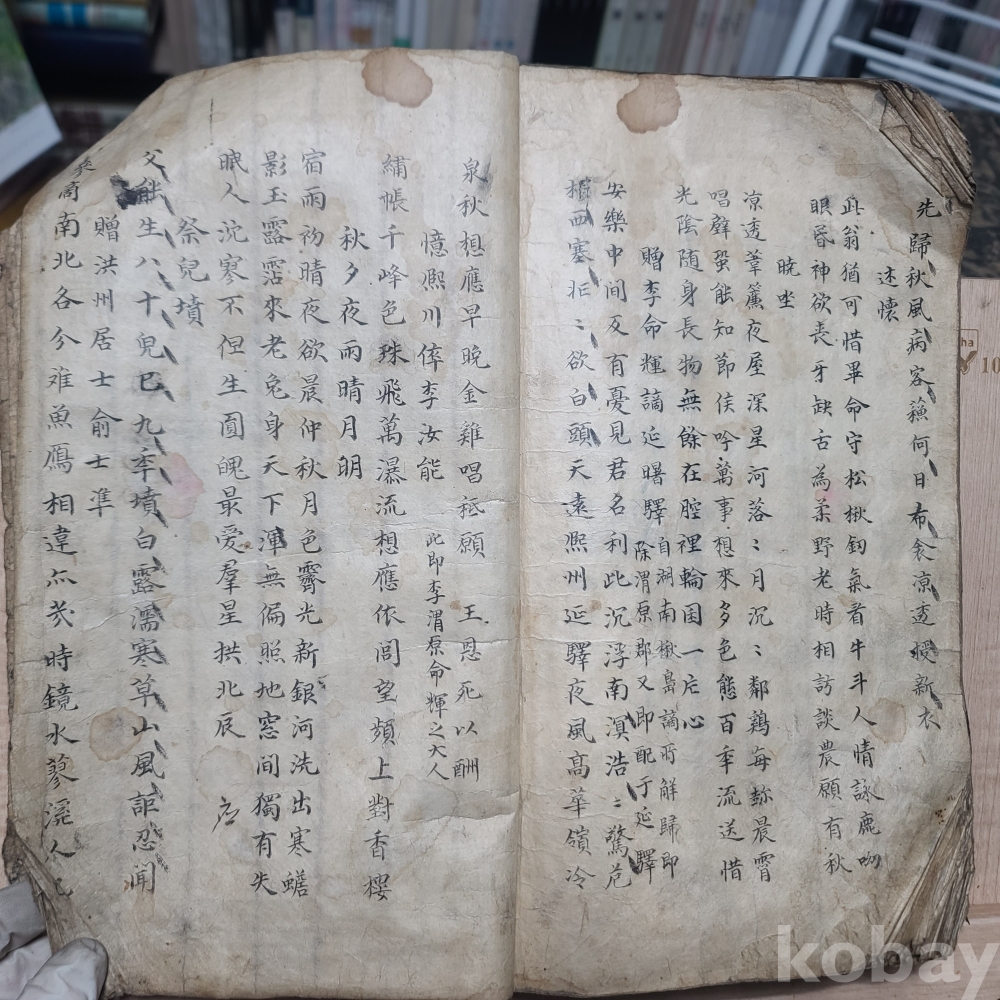 先歸秋風病客蘓何日布衾凉透授新衣
述懷
此翁猶可惜畢命守松楸釰氣者牛斗人情詠鹿呦
眼昏神欲丧牙缺舌為柔野老時相訪談農願有秋
曉坐
凉透葦簾夜屋深星河落〻月沉〻鄰鷄每趂晨霄
唱聲蛩能知節侯吟萬事想來多色態百年流送惜
光陰随身長物無餘在腔裡輪囷一片心
贈李命輝謫延曙驛自湖南楸島謫所解歸即
除渭原郡又即配于延驛
安樂中間反有憂見君名利此沉浮南溟浩〻驚危
楫西塞悲〻欲白頭天遠熙州延驛夜風髙華嶺冷
泉秋想應早晚金雞唱秪願 王恩死以酬
憶熈川倅李汝能此即李渭原命輝之大人
繡帳千峰色殊飛萬瀑流想應依閭望頻上對香樓
秋夕夜雨晴月明
宿雨初晴夜欲晨仲秋月色霽光新銀河洗出寒蟾
影玉露霑來老兔身天下渾無偏照地窓間獨有失
眠人沈寒不但生圓魄最爱羣星拱北辰
祭兒墳
父能生八十兒已九年墳白露濡寒草山風詎忍聞
贈洪州居士俞士準
參商南北各分难魚鴈相違亦幾時鏡水蓼溪人
kobay
10